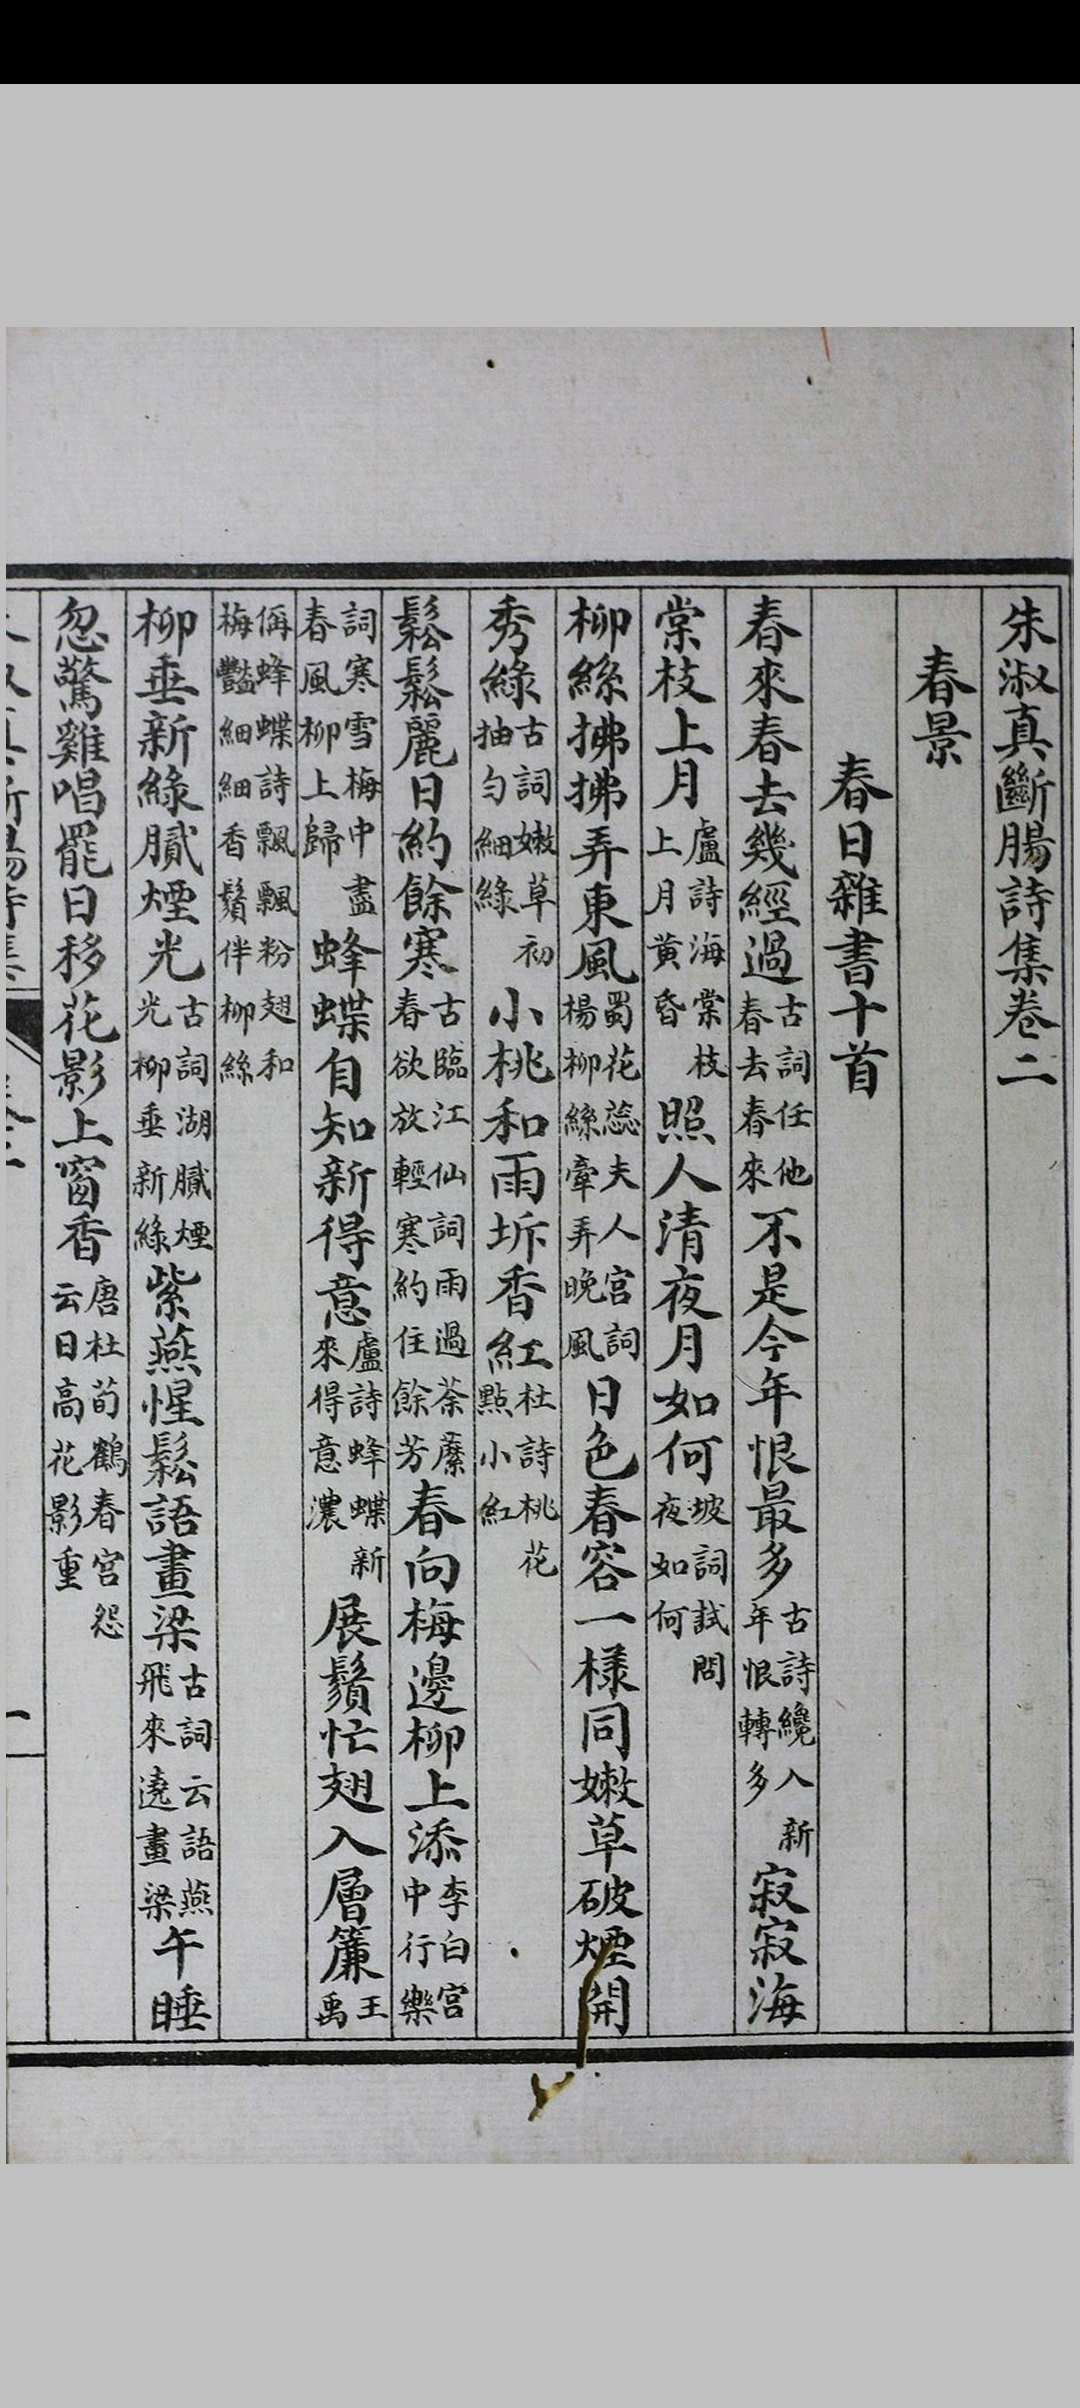 朱淑真斷腸詩集卷二
春景
春日雜書十首
春來春去幾經過古詞任他春去春來不是今年恨最多古詩纔入新年恨轉多寂寂海
棠枝上月盧詩海棠枝上月黃昏照人清夜月如何坡詞試問夜如何
柳絲拂拂弄東風蜀花蕊夫人宮詞楊柳絲牽弄晚風日色春容一樣同嫩草破煙開
秀綠古詞嫩草初抽勻細綠小桃和雨坼香紅杜詩桃花點小紅
鬆鬆麗日約餘寒古臨江仙詞雨過荼蘼春欲放輕寒約住餘芳春向梅邊柳上添李白宮中行樂
詞寒雪梅中盡春風柳上歸蜂蝶自知新得意盧詩蜂蝶新來得意濃展鬚忙翅入層簾王禹
偁蜂蝶詩飄飄粉翅和梅豔細細香鬚伴柳絲
柳垂新綠膩煙光古詞湖膩煙光柳垂新綠紫燕惺鬆語畫梁古詞云語燕飛來遶畫梁午睡
忽驚雞唱罷日移花影上窗香唐杜荀鶴春宮怨云日高花影重